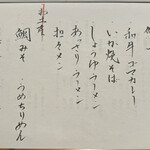 和牛ゴマカレー
いか焼そば
しょうゆラーメン
あっさりラーメン
担々メン
鯛みそ うめちりめん